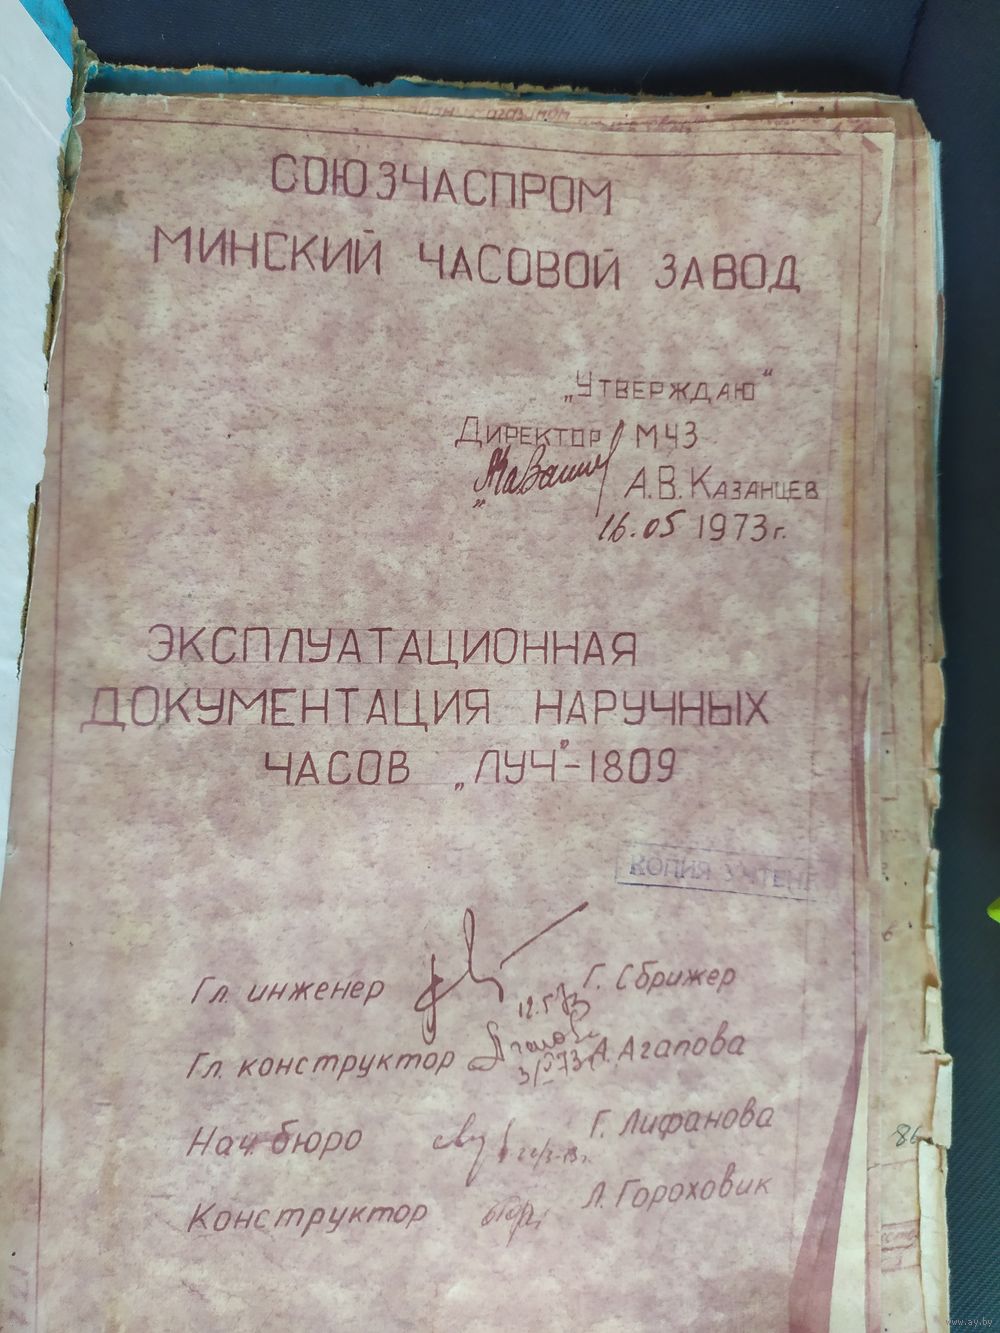 СОЮЗЧАСПРОМ
МИНСКИЙ ЧАСОВОЙ ЗАВОД
„УТВЕРЖДАЮ“
ДИРЕКТОР МЧЗ
А.В. КАЗАНЦЕВ
16.05 1973г.
ЭКСПЛУАТАЦИОННАЯ
ДОКУМЕНТАЦИЯ НАРУЧНЫХ
ЧАСОВ „ЛУЧ"-1809
КОПИЯ УЧТЕН
Гл. инженер Г. Сбрижер
12.5.73
Гл. конструктор А. Агапова
3/V 73
Нач. бюро Г. Лифанова
Конструктор Л. Гороховик
86
www.ay.by